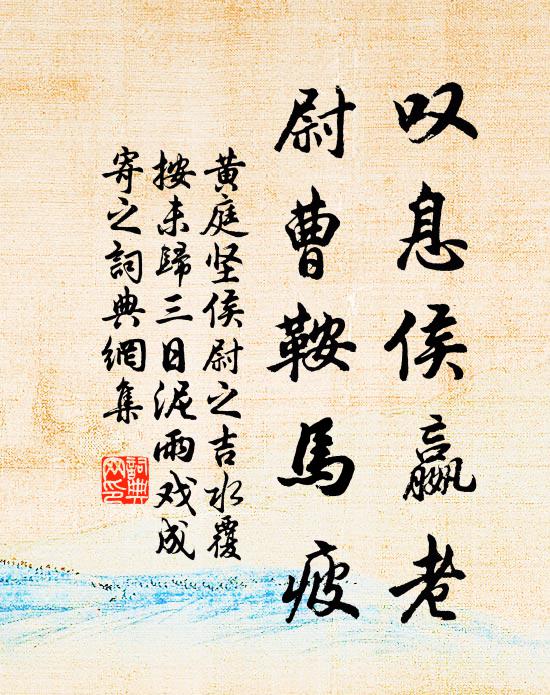 叹息侯嬴老
尉曹鞍馬疲
黄庭坚侯尉之吉水覆
按未歸三日泥雨戏成
寄之詞典網集
詞典网印